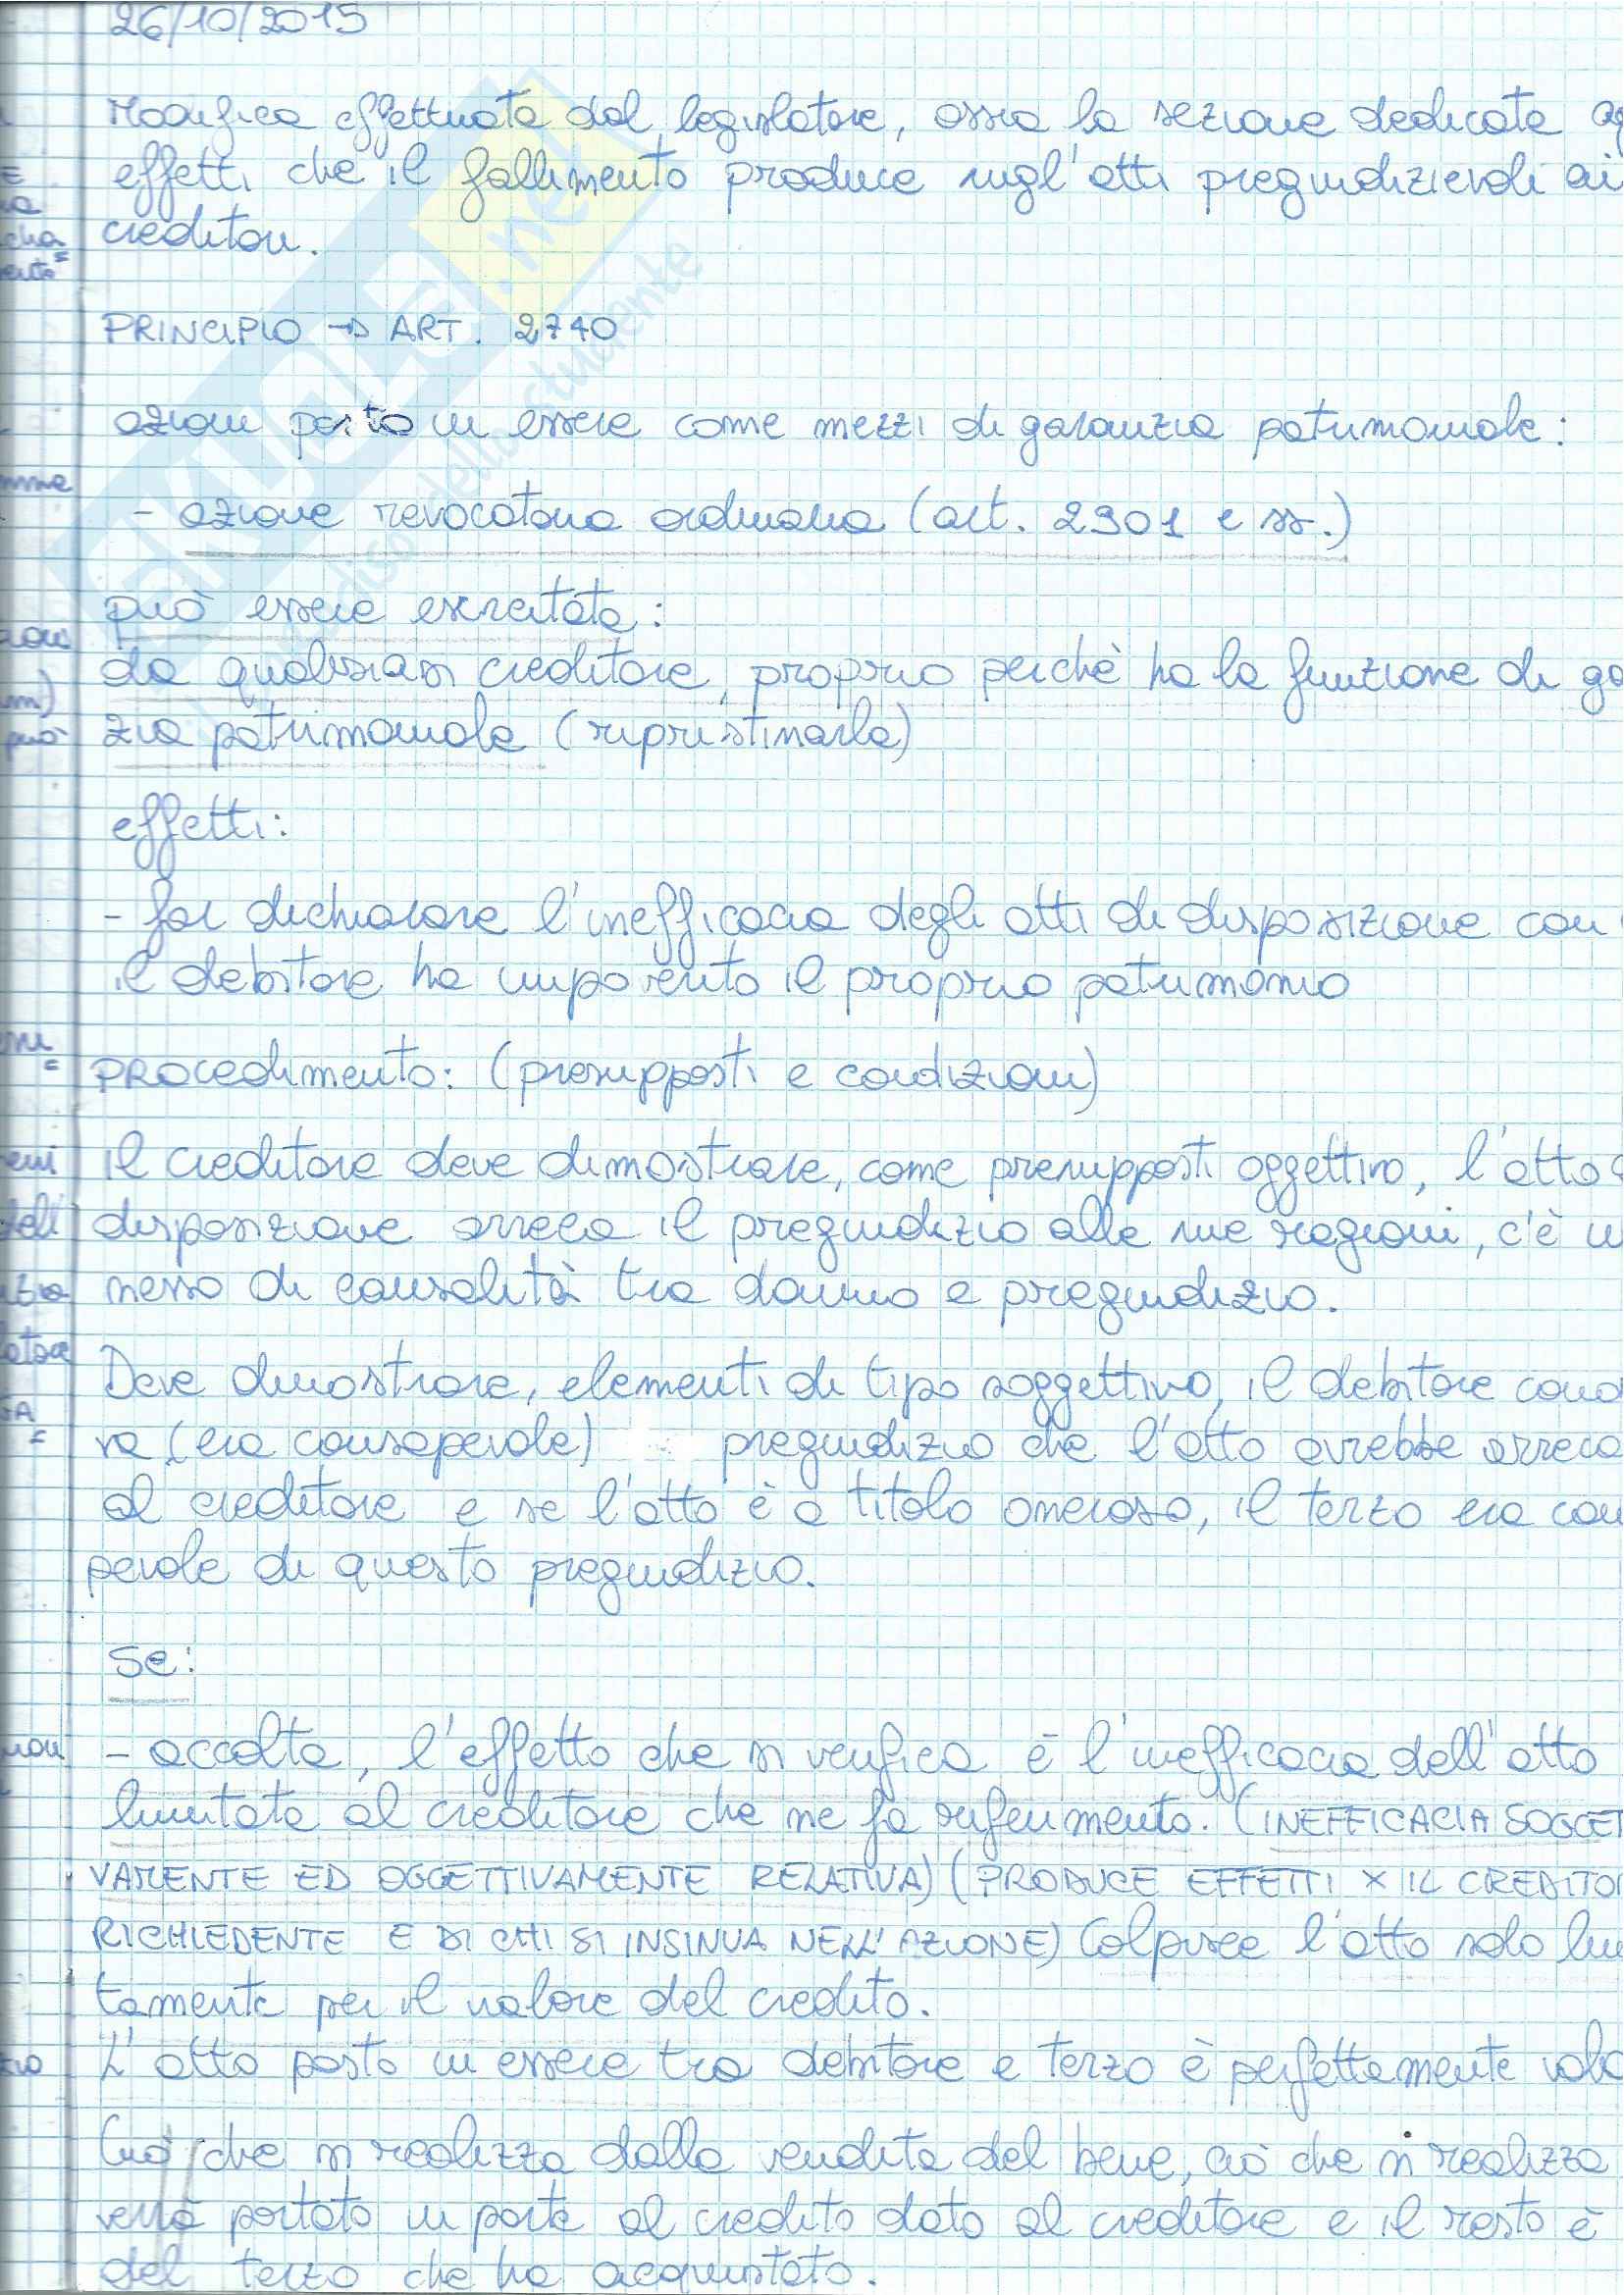 26/10/2015
Modifica effettuata dal legislatore, ossia la sezione dedicata ag
effetti che il fallimento produce sugl'atti pregiudizievoli ai
creditori.
PRINCIPIO → ART. 2740
azioni posto in essere come mezzi di garanzia patrimoniale:
- azione revocatoria ordinaria (art. 2901 e ss.)
può essere esercitata:
da qualsiasi creditore, proprio perchè ha la funzione di ga
zia patrimoniale (ripristinarla)
effetti:
- far dichiarare l'inefficacia degli atti di disposizione con
il debitore ha impoverito il proprio patrimonio
PROCEDIMENTO: (presupposti e condizioni)
Il creditore deve dimostrare, come presupposti oggettivo, l'atto
disposizione arreca il pregiudizio alle sue ragioni, c'è u
nesso di causalità tra danno e pregiudizio.
Deve dimostrare, elementi di tipo soggettivo, il debitore cono
va (era consapevole) pregiudizio che l'atto avrebbe arreca
al creditore e se l'atto è a titolo oneroso, il terzo era con
pevole di questo pregiudizio.
Se:
- accolta, l'effetto che si verifica è l'inefficacia dell'atto
limitata al creditore che ne fa riferimento. (INEFFICACIA SOGGET
VAMENTE ED OGGETTIVAMENTE RELATIVA) (PRODUCE EFFETTI X IL CREDITOR
RICHIEDENTE E DI CHI SI INSINUA NELL'AZIONE) Colpisce l'atto solo lim
tamente per il valore del credito.
L'atto posto in essere tra debitore e terzo è perfettamente valo
Ciò che si realizza dalla vendita del bene, ciò che si realizza
verrà portato in parte al credito dato al creditore e il resto è
del terzo che ha acquistato.
SKUOLA.net